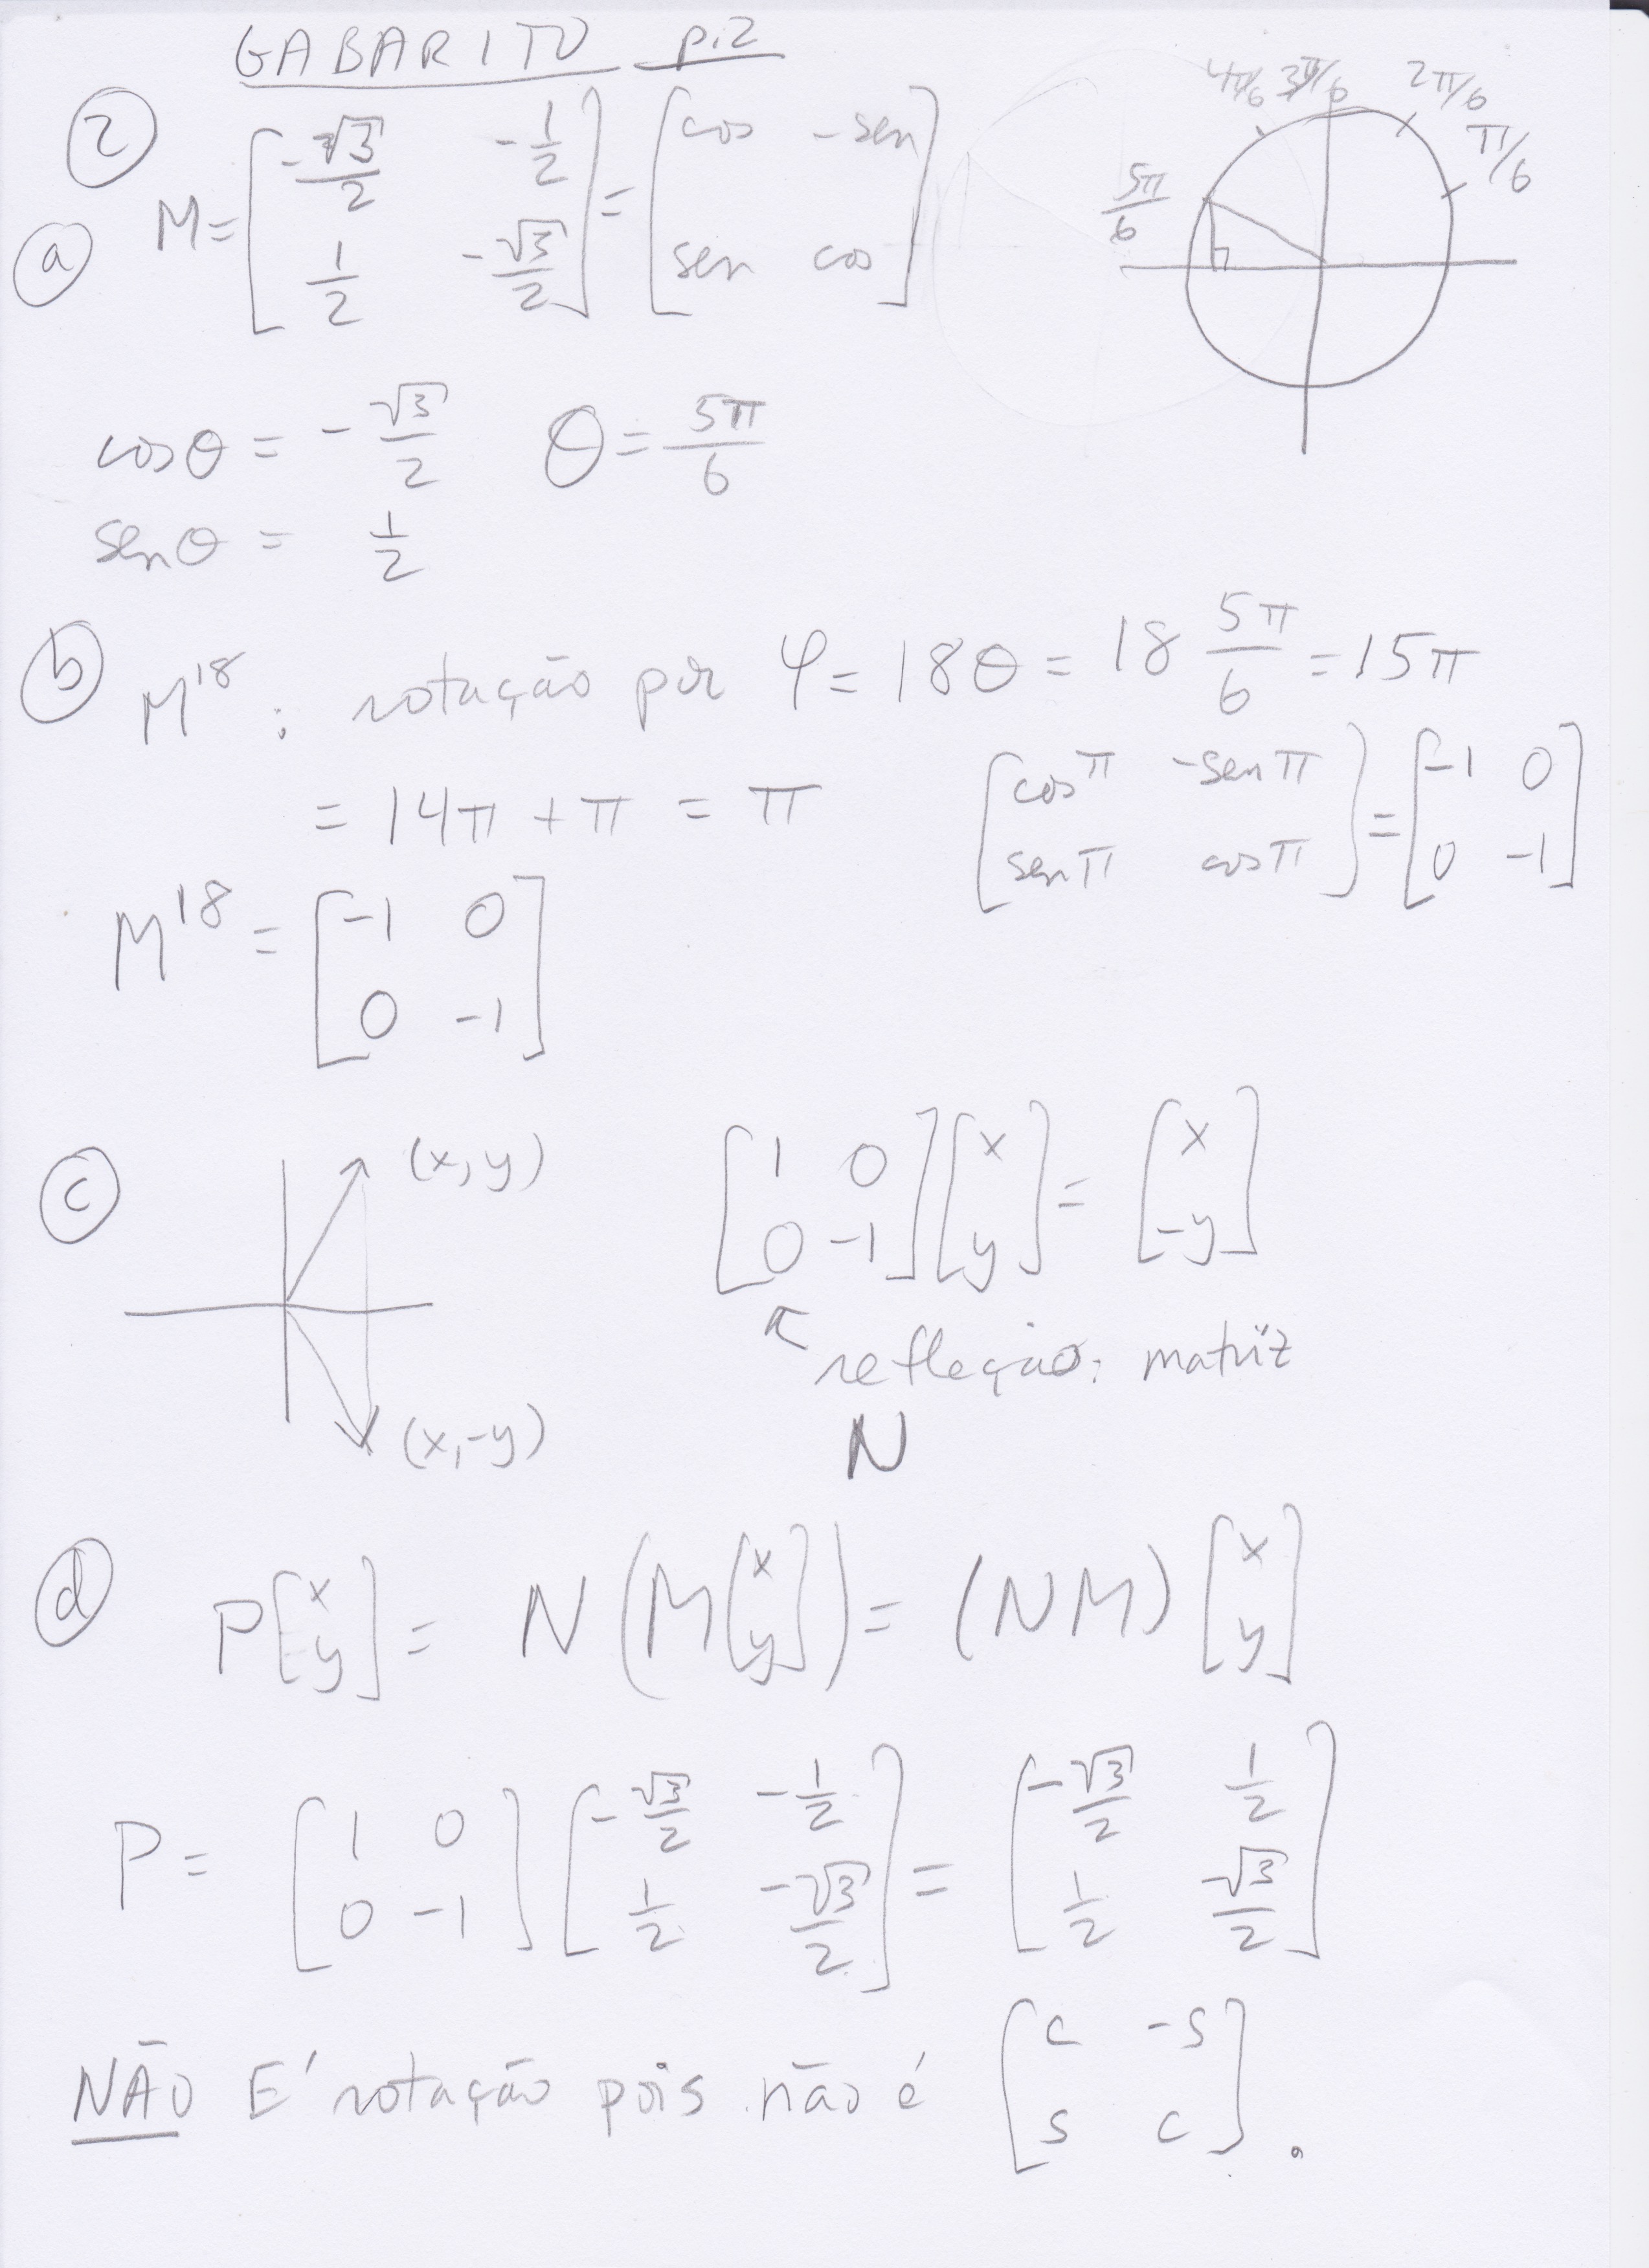 GABARITO p.2
②
ⓐ M = [-√3/2 -1/2; 1/2 -√3/2] = [cos -sen; sen cos]
4π/6 3π/6 2π/6 π/6
5π/6
cosθ = -√3/2 θ = 5π/6
senθ = 1/2
ⓑ M^18 : rotação por φ = 18θ = 18 5π/6 = 15π
= 14π + π = π [cosπ -senπ; senπ cosπ] = [-1 0; 0 -1]
M^18 = [-1 0; 0 -1]
ⓒ (x, y) [1 0; 0 -1] [x; y] = [x; -y]
refleção: matriz
(x, -y) N
ⓓ P[x; y] = N(M[x; y]) = (NM)[x; y]
P = [1 0; 0 -1] [-√3/2 -1/2; 1/2 -√3/2] = [-√3/2 1/2; 1/2 √3/2]
NÃO É rotação pois não é [c -s; s c].